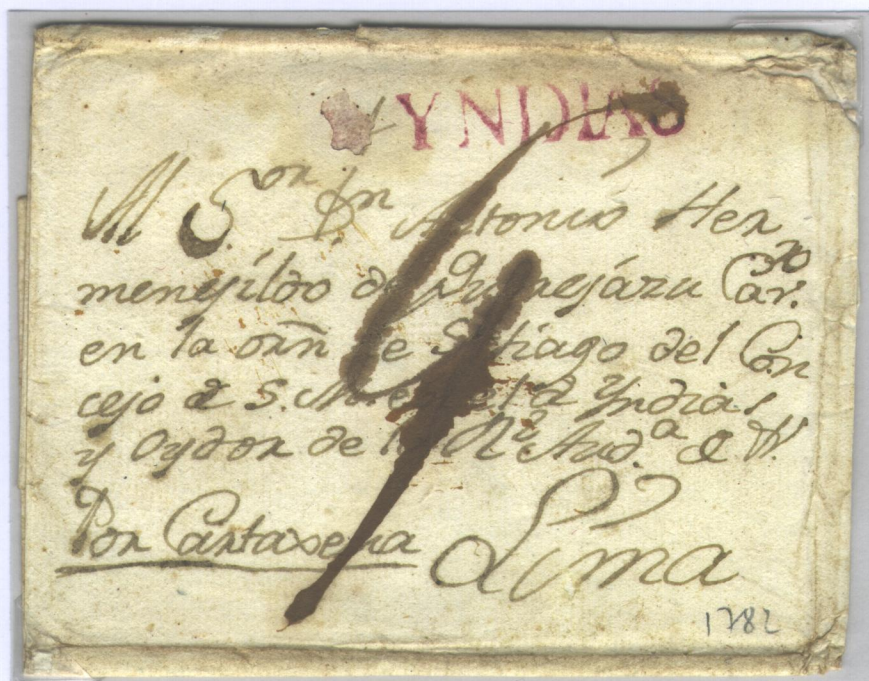 YNDIAS
Al S.or Dn Antonio Her
menejildo de Cavro.
en la orñ de Santiago del Con
cejo de S.M. en el de Yndias
y Oydor de la Rl Aud.a de
Por Cartaxena Lima
1782